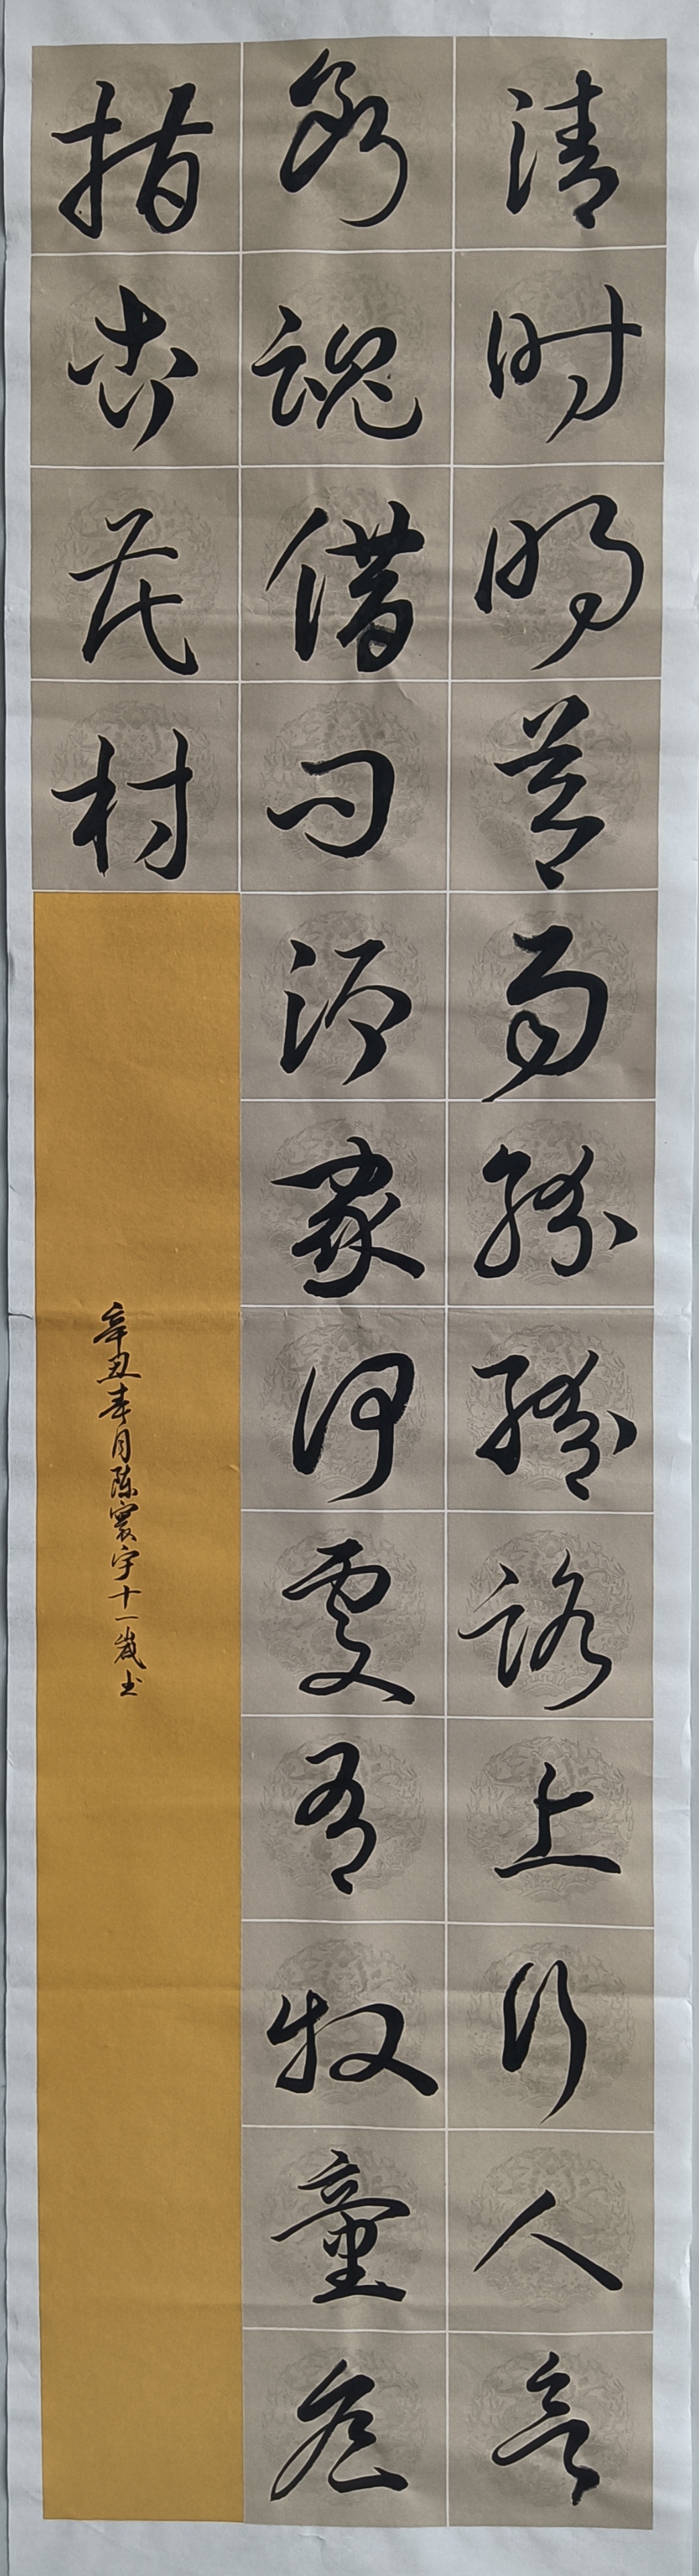 清时明节雨纷纷路上行人欲
断魂借问酒家何处有牧童遥
指杏花村
辛丑春月陈寰宇十一岁书